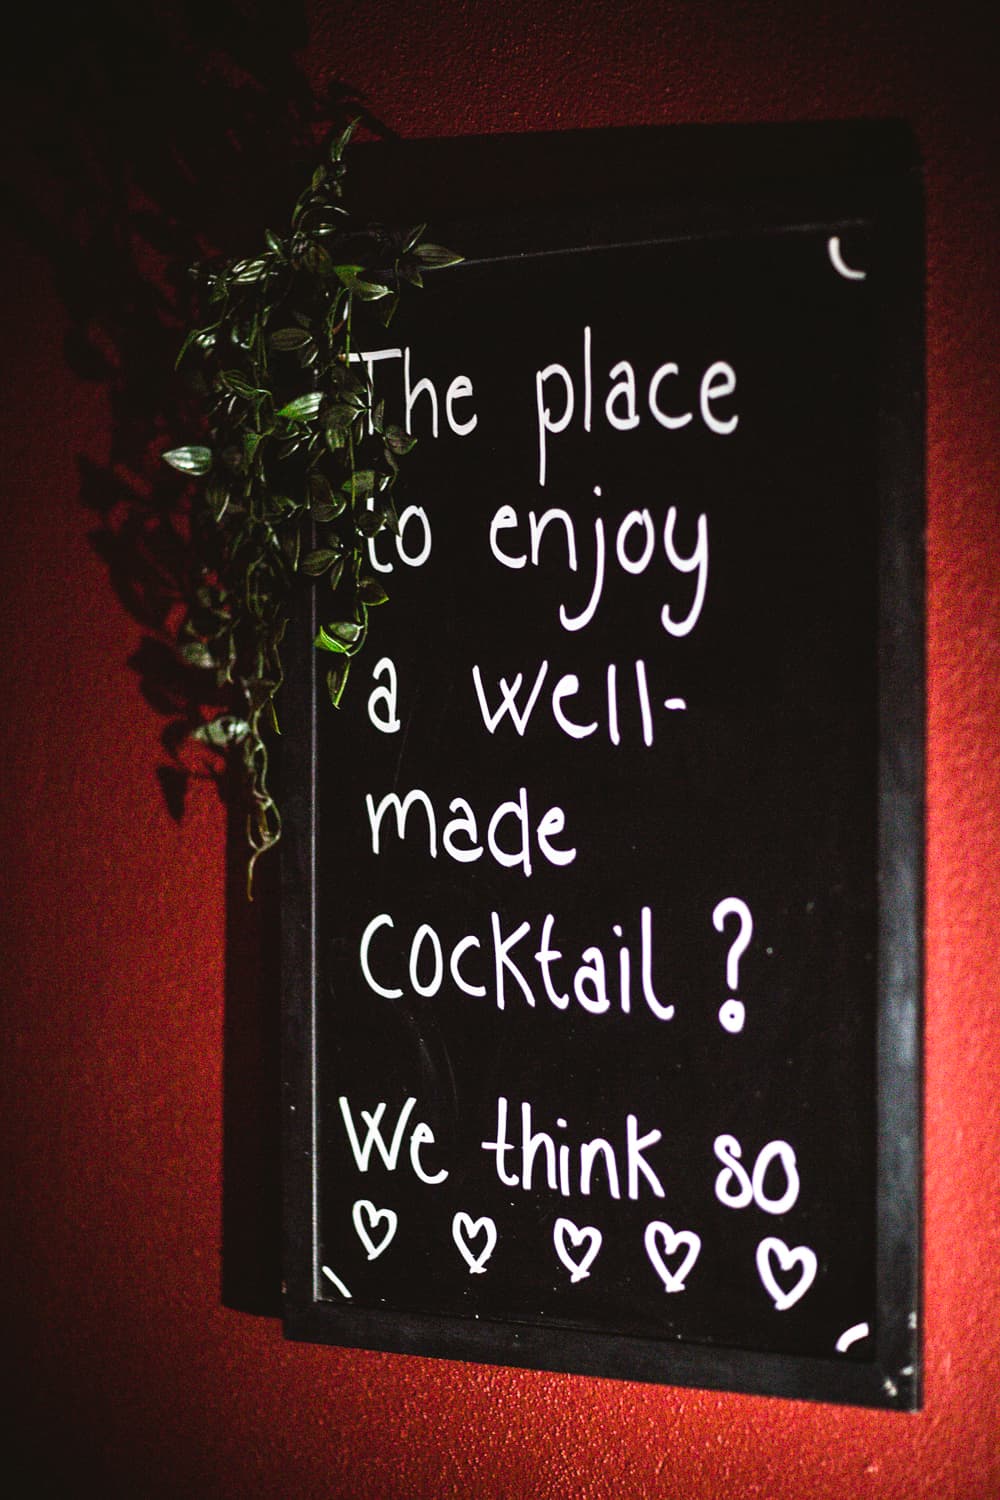 The place
to enjoy
a well-
made
cocktail ?
We think so
♡ ♡ ♡ ♡ ♡